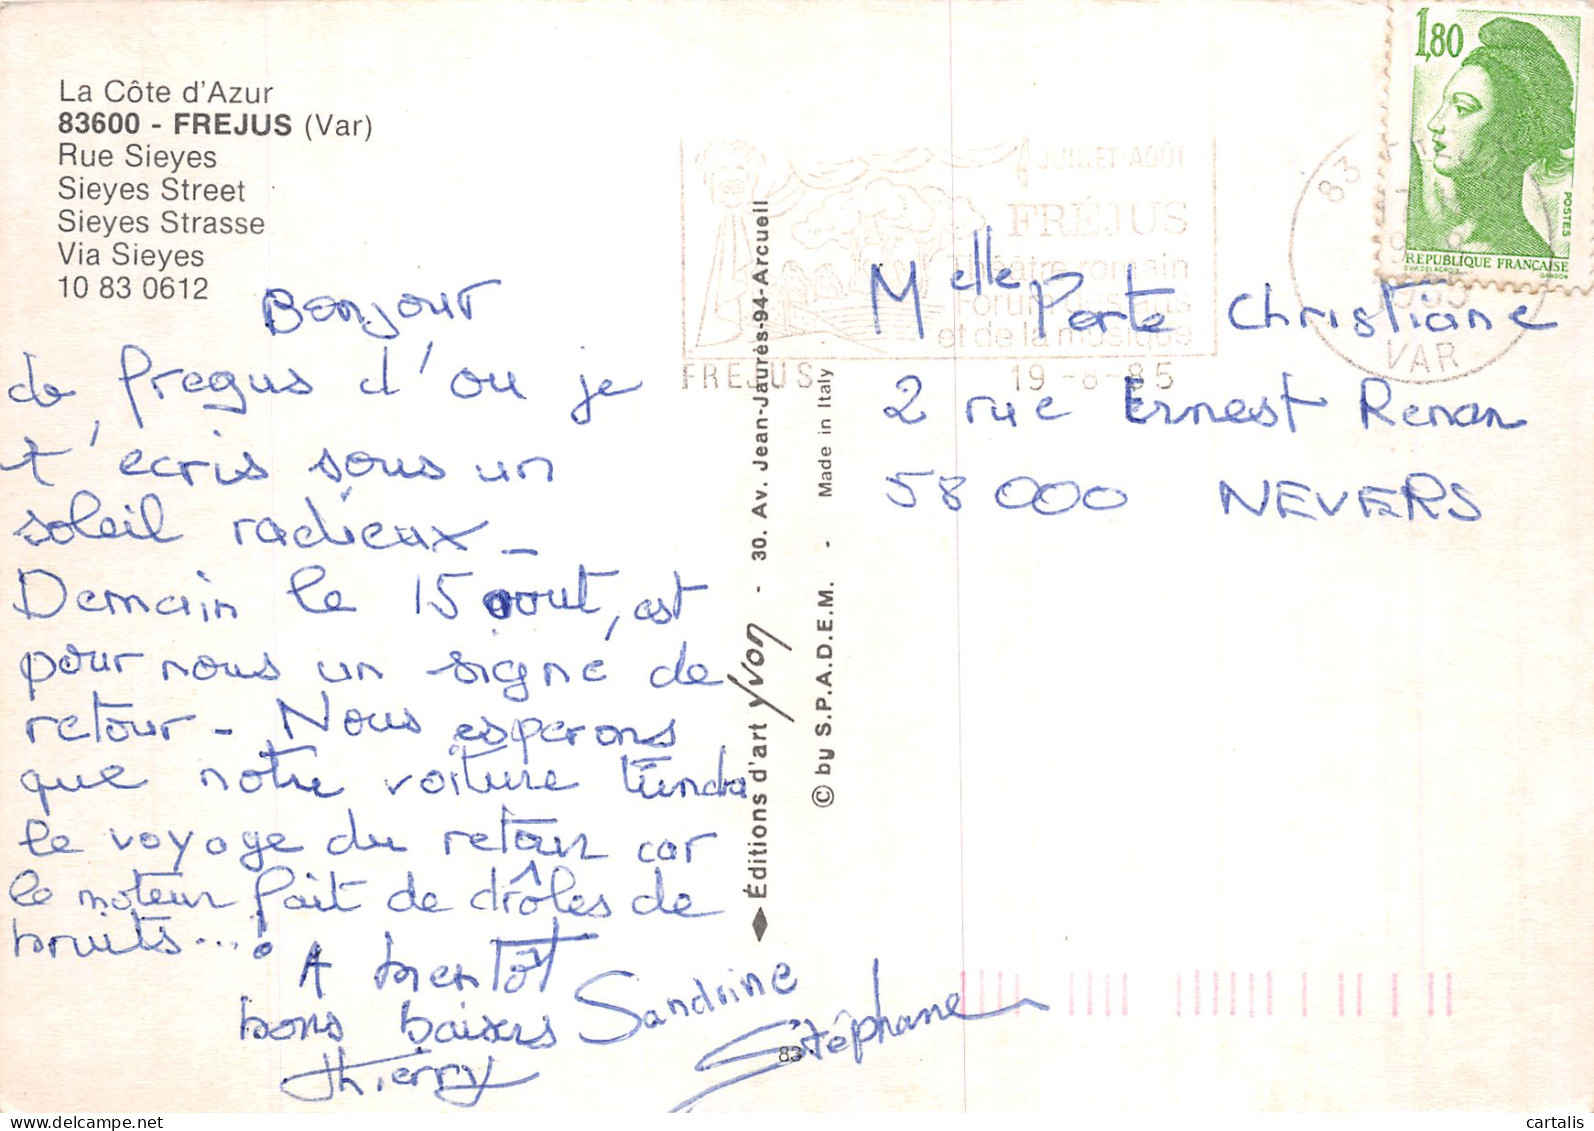 La Côte d'Azur
83600 - FREJUS (Var)
Rue Sieyes
Sieyes Street
Sieyes Strasse
Via Sieyes
10 83 0612
Bonjour
de fregus d'ou je
t'ecris sous un
soleil radieux _
Demain le 15 aout, est
pour nous un signe de
retour - Nous esperons
que notre voiture tiendra
le voyage du retour car
le moteur fait de drôles de
bruits...!
A bientôt
bons baisers
Thierry
Sandrine
Stéphane
83
♦ Éditions d'art yvon - 30. Av. Jean-Jaurès-94-Arcueil
© by S.P.A.D.E.M. - Made in Italy
JUILLET-AOÛT
FRÉJUS
Théâtre romain
Forum des arts
et de la musique
FREJUS 19-8-85
83
VAR
1,80
POSTES
REPUBLIQUE FRANÇAISE
D'AP. DELACROIX GANDON
Melle Porte Christiane
2 rue Ernest Renan
58 000 NEVERS
cartalis
www.delcampe.net